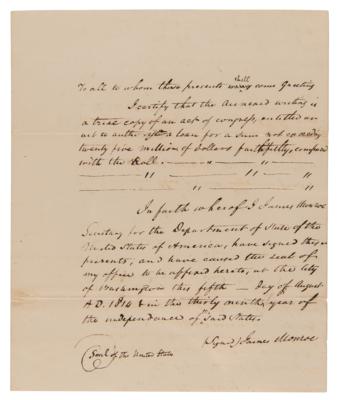 To all to whom these presents shall come Greeting
I certify that the annexed writing is
a true copy of an act of congress, entitled an
act to authorise a loan for a sum not exceeding
twenty five million of dollars faithfully compared
with the Roll. — " — " — "
— " — " — "
— " — "
In faith whereof I James Monroe
Secretary for the Department of State of the
United States of America, have signed these
presents, and have caused the seal of
my office to be affixed hereto, at the City
of Washington this fifth — Day of August
A.D. 1814 & in the thirty ninth year of
the independance of said States.
(Signed) James Monroe
(Seal of the United States